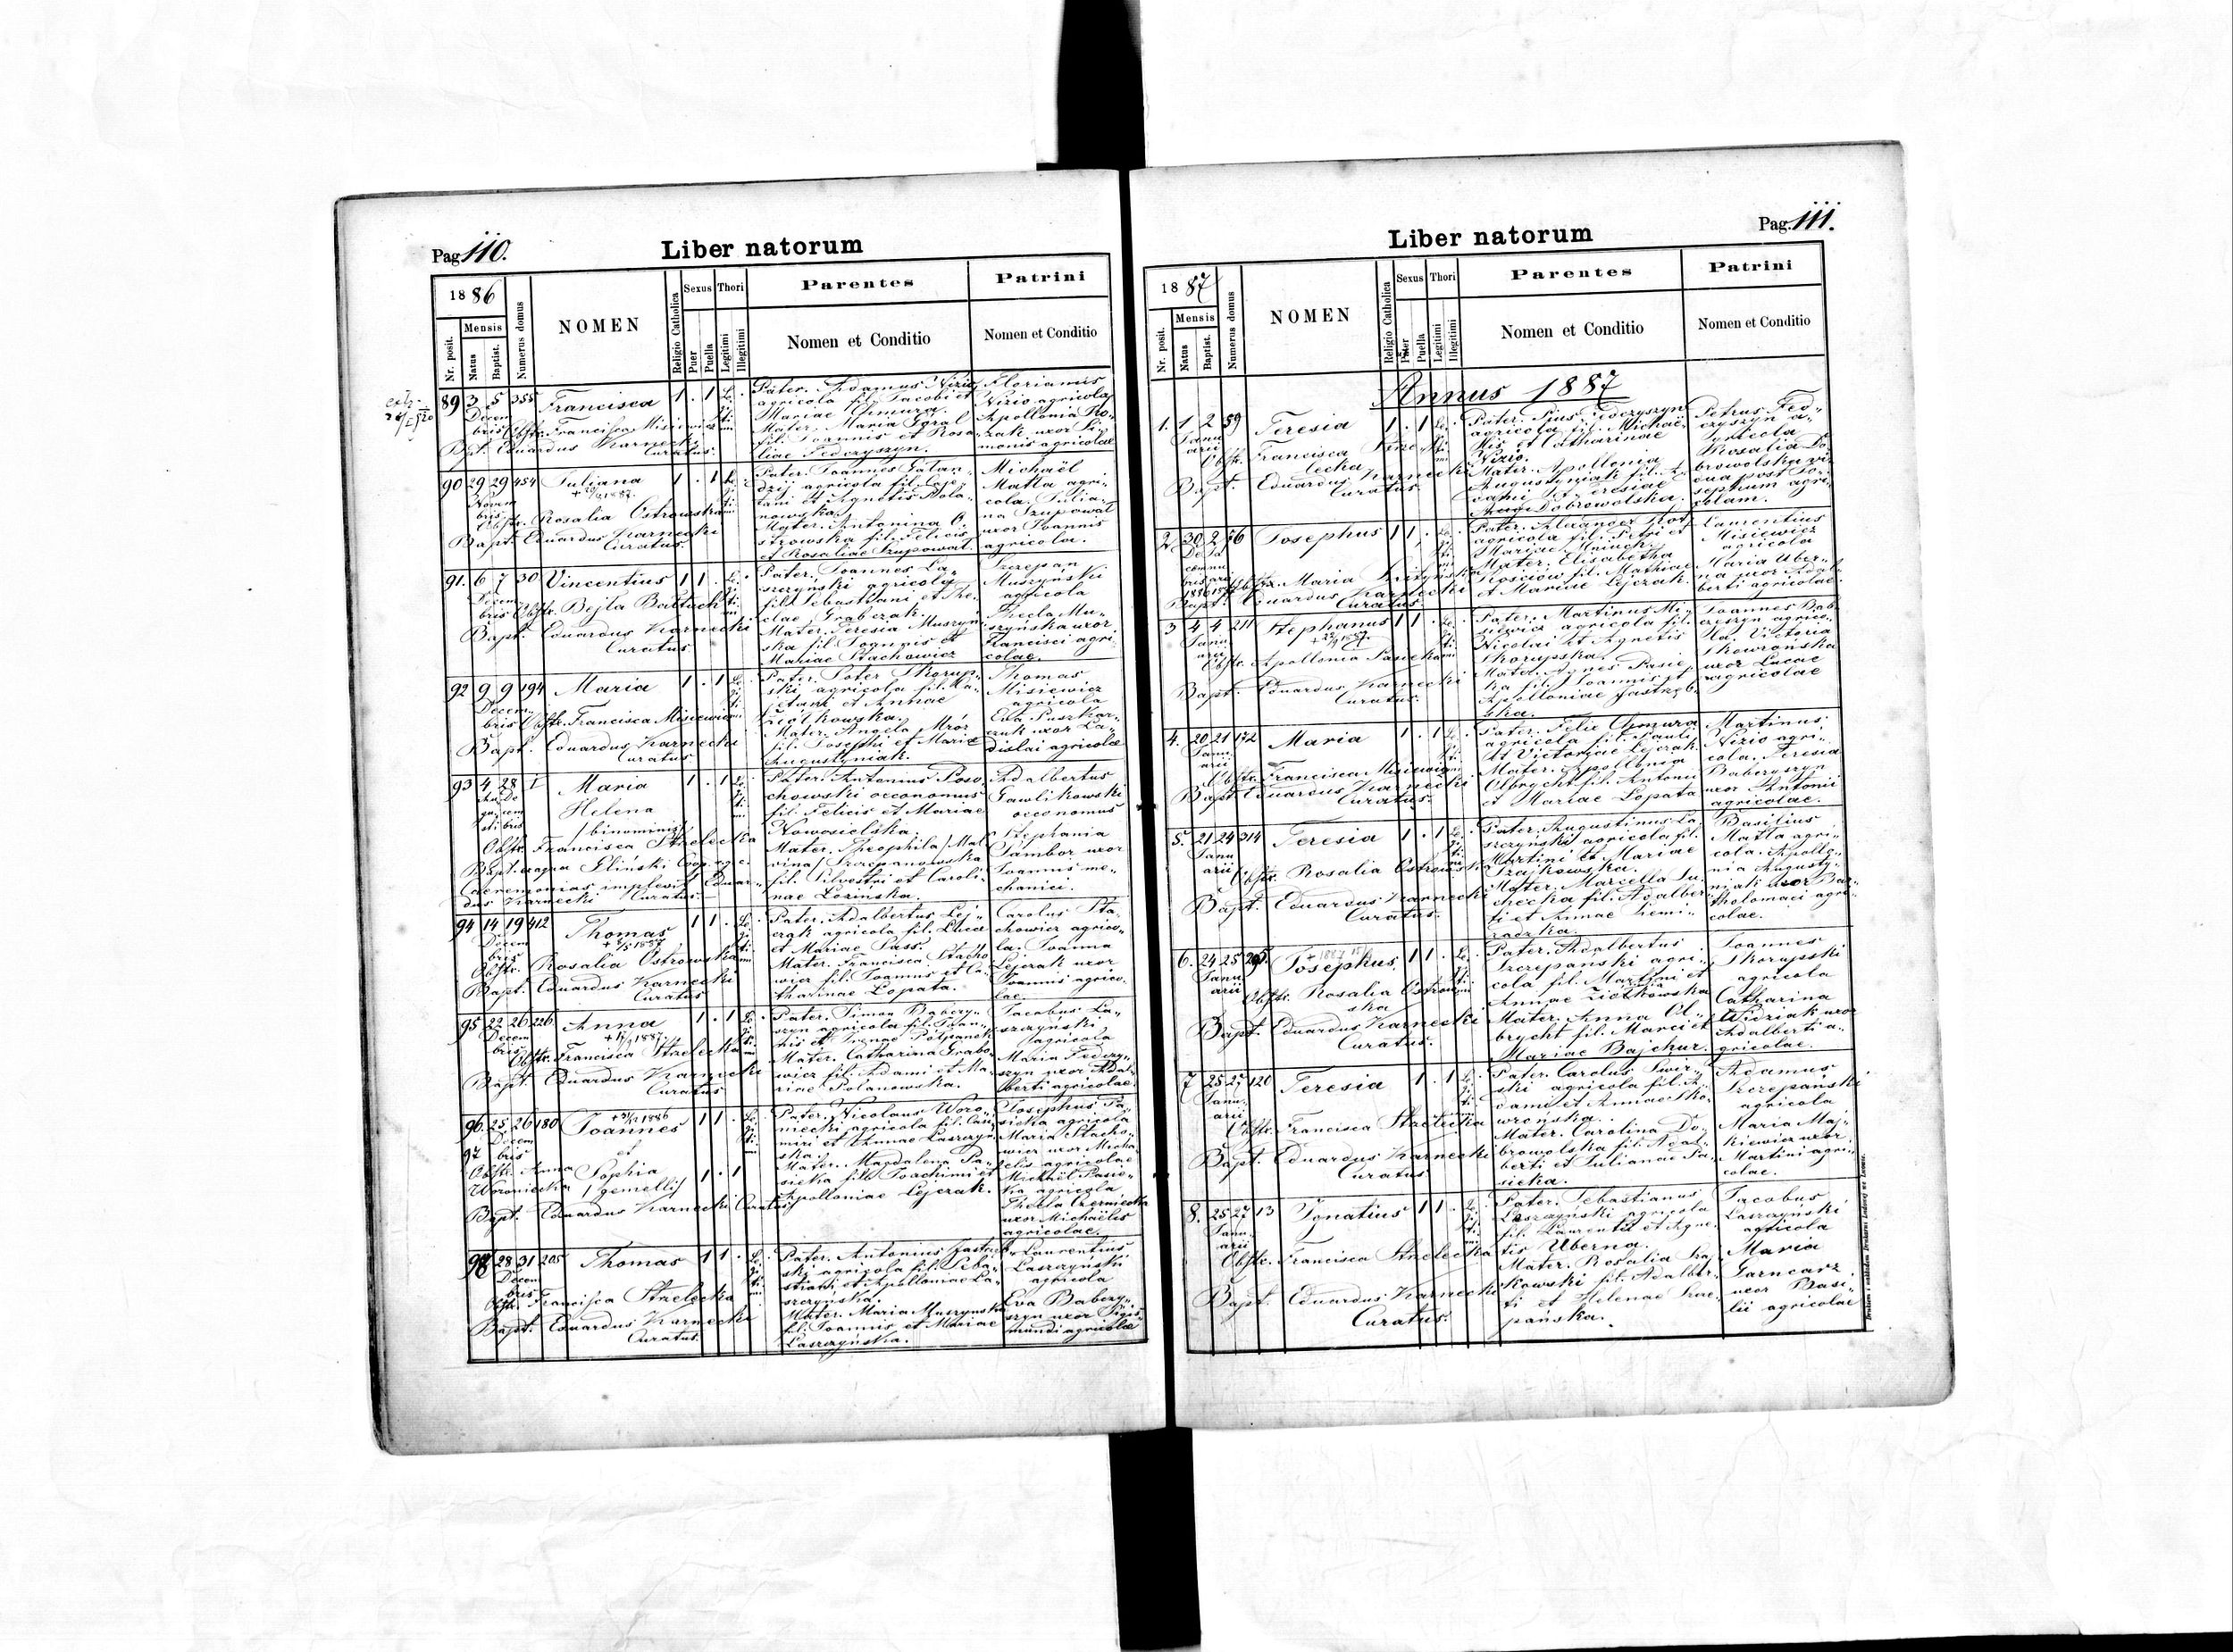 Pag. 110.
Liber natorum
1886
Nr. posit.
Mensis
Natus
Baptist.
Numerus domus
NOMEN
Religio Catholica
Sexus
Puer
Puella
Thori
Legitimi
Illegitimi
Parentes
Nomen et Conditio
Patrini
Nomen et Conditio
89 3 5 355 Francisca 1 . 1
Decembris
Obstr. Francisca Misiewicz
Bapt. Eduardus Karnecki
Curatus.
Pater. Adamus Nizio
agricola fil. Jacobi et
Mariae Chmura.
Mater. Maria Igral
fil. Joannis et Rosa-
liae Fedczyszyn.
Florianus
Nizio agricola
Apollonia Ko-
zak uxor Si-
monis agricolae
90 29 29 454 Juliana 1 . 1
Novembris
Obstr. Rosalia Ostrowska
Bapt. Eduardus Karnecki
Curatus.
Pater. Joannes
agricola fil. Caje-
tani et Agnetis Pola-
nowska.
Mater. Antonina O-
strowska fil. Felicis
et Rosaliae Szupowat.
Michaël
Matla agri-
cola. Julia-
na Szupowat
uxor Joannis
agricola.
91. 6 7 30 Vincentius 1 1 .
Decembris
Obstr. Bejla
Bapt. Eduardus Karnecki
Curatus
Pater. Joannes La-
szczyński agricola
fil. Sebastiani et The-
clae Grabczak.
Mater. Teresia Muszyń-
ska fil. Joannis et
Mariae Stachowicz
Szczepan
Muszyński
agricola
Thecla Mu-
szyńska uxor
Francisci agri-
colae.
92 9 9 194 Maria 1 . 1
Decembris
Obstr. Francisca Misiewicz
Bapt. Eduardus Karnecki
Curatus
Pater. Skorup-
ski agricola fil. Ca-
jetani et Annae
Ziółkowska.
Mater. Angela Mróz
fil. Josephi et Mariae
Augustyniak.
Thomas
Misiewicz
agricola
Eva Puszkar-
czuk uxor La-
dislai agricolae
93 4 28 1 Maria 1 . 1
Helena
/binominis/
Obstr. Francisca Strzelecka
Bapt. ex aqua Gliński Coop.
Caeremonias implevit Eduar-
dus Karnecki Curatus.
Pater. Antonius Poso-
chowski oeconomus
fil. Felicis et Mariae
Nowosielska
Mater. Theophila /Mal-
vina/ Szczepanowska
fil. Silvestri et Caroli-
nae Łozińska.
Adalbertus
Gawlikowski
oeconomus
Stephania
Sambor uxor
Joannis me-
chanici.
94 14 19 412 Thomas 1 1 .
Decembris
Obstr. Rosalia Ostrowska
Bapt. Eduardus Karnecki
Curatus
Pater. Adalbertus Lej-
czak agricola fil. Lucae
et Mariae Pass.
Mater. Francisca Stacho-
wicz fil. Joannis et Ca-
tharinae Lopata.
Carolus Sta-
chowicz agrico-
la. Joanna
Lejczak uxor
Joannis agrico-
lae.
95 22 26 226 Anna 1 . 1
Decembris
Obstr. Francisca Strzelecka
Bapt. Eduardus Karnecki
Curatus
Pater. Simon Babczy-
szyn agricola fil. Joan-
nis et Irenae Półpanek
Mater. Catharina Grabo-
wicz fil. Adami et Ma-
riae Polanowska.
Jacobus La-
szczyński
agricola
Maria Fedczy-
szyn uxor Adal-
berti agricolae.
96. 25 26 180 Joannes 1 1 .
97 Decembris
et
Obstr. Anna Sophia 1 . 1
Woroniecka /gemelli/
Bapt. Eduardus Karnecki Curatus
Pater. Nicolaus Woro-
niecki agricola fil. Casi-
miri et Annae Laszczyń-
ska.
Mater. Magdalena Pa-
sieka fil. Joachimi et
Apolloniae Lejczak.
Josephus Pa-
sieka agricola
Maria Stacho-
wicz uxor Micha-
elis agricolae
Michaël Pasie-
ka agricola
Thecla
uxor Michaëlis
agricolae.
98 28 31 205 Thomas 1 1 .
Decembris
Obstr. Francisca Strzelecka
Bapt. Eduardus Karnecki
Curatus.
Pater. Antonius
agricola fil. Seba-
stiani et Apolloniae La-
szczyńska.
Mater. Maria Muszyńska
fil. Joannis et Mariae
Laszczyńska.
Laurentius
Laszczyński
agricola
Eva Babczy-
szyn uxor Sigis-
mundi agricolae
Pag. 111.
Liber natorum
1887
Nr. posit.
Mensis
Natus
Baptist.
Numerus domus
NOMEN
Religio Catholica
Sexus
Puer
Puella
Thori
Legitimi
Illegitimi
Parentes
Nomen et Conditio
Patrini
Nomen et Conditio
Annus 1887
1. 1 2 59 Teresia 1 . 1
Januarii
Obstr. Francisca Strze-
lecka
Bapt. Eduardus Karnecki
Curatus.
Pater. Pius Fedczyszyn
agricola fil. Michaë-
lis et Catharinae
Nizio.
Mater. Apollonia
Augustyniak fil. A-
dami et Teresiae
Dobrowolska.
Petrus Fed-
czyszyn a-
gricola
Rosalia Do-
browolska vi-
dua post Jo-
sephum agri-
colam.
2. 30 2 56 Josephus 1 1 .
Obstr. Maria
Bapt. Eduardus Karnecki
Curatus
Pater. Alexander
agricola fil. Petri et
Mariae
Mater. Elisabetha
Kościow fil. Mathiae
et Mariae Lejczak.
Laurentius
Misiewicz
agricola
Maria Uber-
na uxor Adal-
berti agricolae.
3 4 4 211 Stephanus 1 1 .
Januarii
Obstr. Apollonia Pasieka
Bapt. Eduardus Karnecki
Curatus.
Pater. Martinus Mi-
siewicz agricola fil.
Nicolai et Agnetis
Skorupska.
Mater. Agnes Pasie-
ka fil. Joannis et
Apolloniae Jastrzęb-
ska.
Joannes Bab-
czyszyn agrico-
la. Victoria
Skowrońska
uxor Lucae
agricolae
4. 20 21 172 Maria 1 . 1
Januarii
Obstr. Francisca Misiewicz
Bapt. Eduardus Karnecki
Curatus.
Pater. Felix Chmura
agricola fil. Pauli
et Victoriae Lejczak.
Mater. Apollonia
Olbrycht fil. Antonii
et Mariae Lopata
Martinus
Nizio agri-
cola. Teresia
Babczyszyn
uxor Antonii
agricolae.
5. 21 24 314 Teresia 1 . 1
Januarii
Obstr. Rosalia Ostrowska
Bapt. Eduardus Karnecki
Curatus.
Pater. Augustinus La-
szczyński agricola fil.
Martini et Mariae
Szajkowska.
Mater. Marcella Su-
checka fil. Adalber-
ti et Annae Siemi-
radzka.
Basilius
Matla agri-
cola. Apollo-
nia Augusty-
niak uxor Bar-
tholomaei agri-
colae.
6. 24 25 Josephus 1 1 .
Januarii
Obstr. Rosalia Ostrow-
ska
Bapt. Eduardus Karnecki
Curatus.
Pater. Adalbertus
Szczepański agri-
cola fil. Martini et
Annae Ziółkowska
Mater. Anna Ol-
brycht fil. Marci et
Mariae Bajchur.
Joannes
Skorupski
agricola
Catharina
Widziak uxor
Adalberti a-
gricolae.
7 25 27 120 Teresia 1 . 1
Januarii
Obstr. Francisca Strzelecka
Bapt. Eduardus Karnecki
Curatus.
Pater. Carolus Swir-
ski agricola fil. A-
dami et Annae Sko-
wrońska.
Mater. Carolina Do-
browolska fil. Adal-
berti et Julianae Pa-
sieka.
Adamus
Szczepański
agricola
Maria Maj-
kiewicz uxor
Martini agri-
colae.
8. 25 27 13 Ignatius 1 1 .
Januarii
Obstr. Francisca Strzelecka
Bapt. Eduardus Karnecki
Curatus.
Pater. Sebastianus
Laszczyński agricola
fil. Laurentii et Agne-
tis Uberna.
Mater. Rosalia
fil. Adalber-
ti et Helenae Szcze-
pańska.
Jacobus
Laszczyński
agricola
Maria
Garncarz
uxor Basi-
lii agricolae